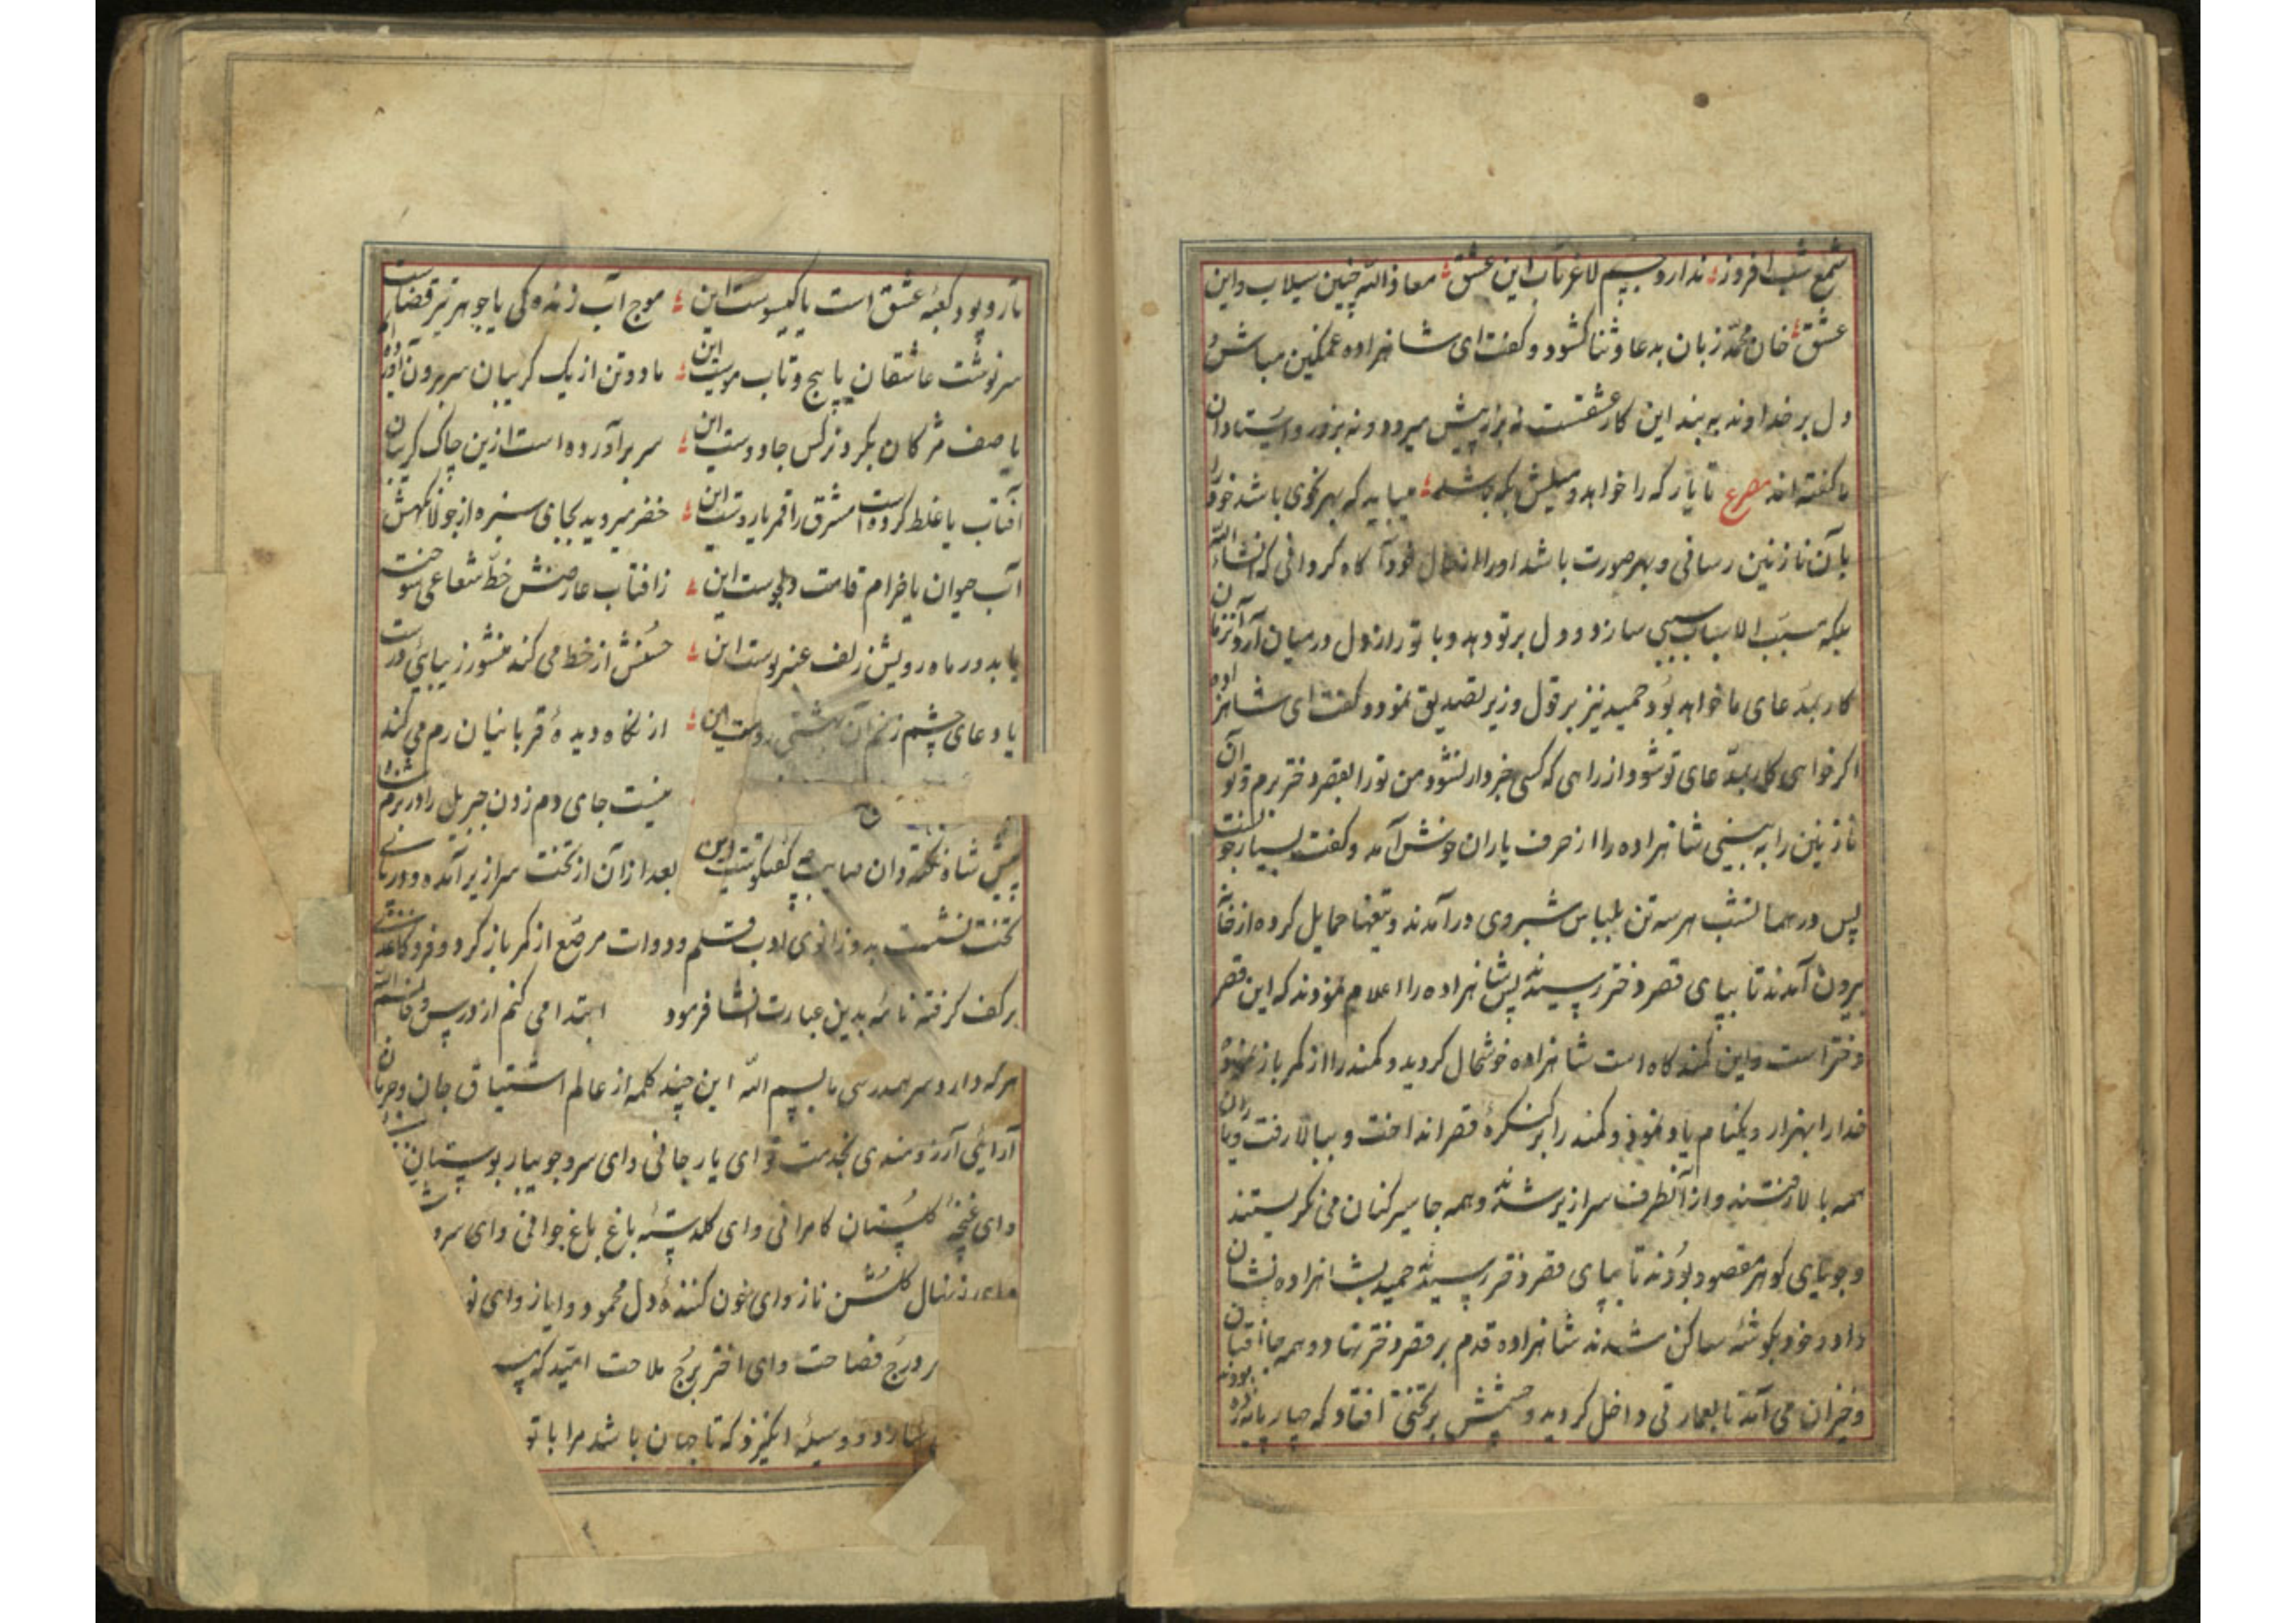 شمع شب افروز ندارد جسم لاغر تاب این عشق معاذ الله چنین سیلاب و این
عشق خان محمد زبان بدعا و ثنا کشود و گفت ای شاهزاده غمگین مباش و
دل بر خداوند به بند این کار عشقست نه بزر پیش میرود و نه بزور و استادان
ما گفته اند مصرع تا یار که را خواهد و میلش بکه باشد میباید که بهر نحوی باشد خود را
بآن نازنین رسانی و بهر صورت باشد او را از حال خود آگاه گردانی که انشاء الله
بلکه مسبب الاسباب سببی سازد و دل بر تو دهد و با تو راز دل در میان آرد آنزمان
کار بمدعای ما خواهد بود حمید نیز بر قول وزیر تصدیق نمود و گفت ای شاهزاده
اگر خواهی کار بمدعای تو شود از راهی که کسی خبردار نشود من تو را بقصر دختر برم و تو آن
نازنین را به بینی شاهزاده را از حرف یاران خوش آمد و گفت بسیار خوبست
پس در همانشب هر سه تن بلباس شبروی در آمدند و تیغها حمایل کرده از خانه
بیرون آمدند تا بپای قصر دختر رسیدند پس شاهزاده را اعلام نمودند که این قصر
دختر است و این کمندگاه است شاهزاده خوشحال گردید و کمند را از کمر باز نمود
خدا را بهزار و یکنام یاد نمود و کمند را بر کنگرهٔ قصر انداخت و ببالا رفت و یاران
همه بالا رفتند و از آنطرف سرازیر شدند و همه جا سیر کنان می نگریستند
و جویای گوهر مقصود بودند تا بپای قصر دختر رسیدند حمید بشاهزاده نشان
داد و خود بگوشهٔ ساکن شدند شاهزاده قدم بر قصر دختر نهاد و همه جا افتان
و خیزان می آمد تا بعمارتی داخل گردید و چشمش بر تختی افتاد که چهار پایه
تار و پود کعبهٔ عشق است یا گیسوست این موج آب زندگی یا جوهر تیر قضاست
سرنوشت عاشقان یا پیچ و تاب موست این ماه دو تن از یک گریبان سر برون آورده
یا صف مژگان بگرد نرگس جادوست این سر بر آورده است ازین چاک گریبان
آفتاب یا غلط کرده است مشرق را قمر یا روست این خضر میروید بجای سبزه از جولانگهش
آب حیوان یا خرام قامت دلجوست این ز افتاب عارضش خط شعاعی سوخته
یا بدور ماه رویش زلف عنبر بوست این حسنش از خط می کند منشور زیبائی درست
یا دعای چشم زخم آن بهشتی روست این از نگاه دیدهٔ قربانیان رم می کند
نیست جای دم زدن جبریل را در بزم
پیش شاه نکته دان صایب چه گفتگوست این بعد از آن از تخت سرازیر آمده و در پای
تخت نشست بدو زانوی ادب قلم و دوات مرصع از کمر باز کرد و فرد کاغذی
بر کف گرفته نامهٔ بدین عبارت انشا فرمود ابتدا می کنم از درس وفا بسم الله
هر که دارد سر همدرسی ما بسم الله این چند کلمه از عالم اشتیاق جان و جریان
آرایئ آرزومندی بخدمت تو ای یار جانی و ای سرو جویبار بوستان
و ای غنچهٔ گلستان کامرانی و ای گلدستهٔ باغ باغ جوانی و ای سرو
نهال گلشن ناز و ای خون کنندهٔ دل محمود و ایاز و ای
درج فصاحت و ای اختر برج ملاحت امید که
سازد و وسیلهٔ انگیزد که تا جهان باشد مرا با تو